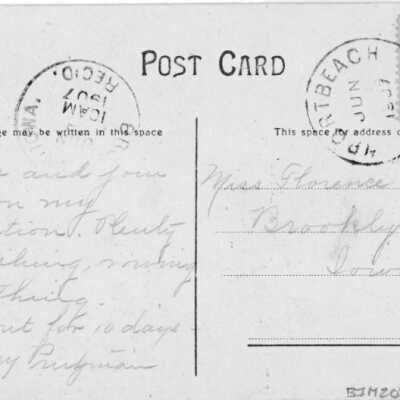 POST CARD
IOWA.
REC'D.
10 AM
1907
BR
PORT BEACH
JUN
1907
ge may be written in this space
This space for address o
and your
on my
tion. Plenty
shing, rowing
Thing.
out for 10 days -
y
Miss Florence
Brookly
Iow
BJM20